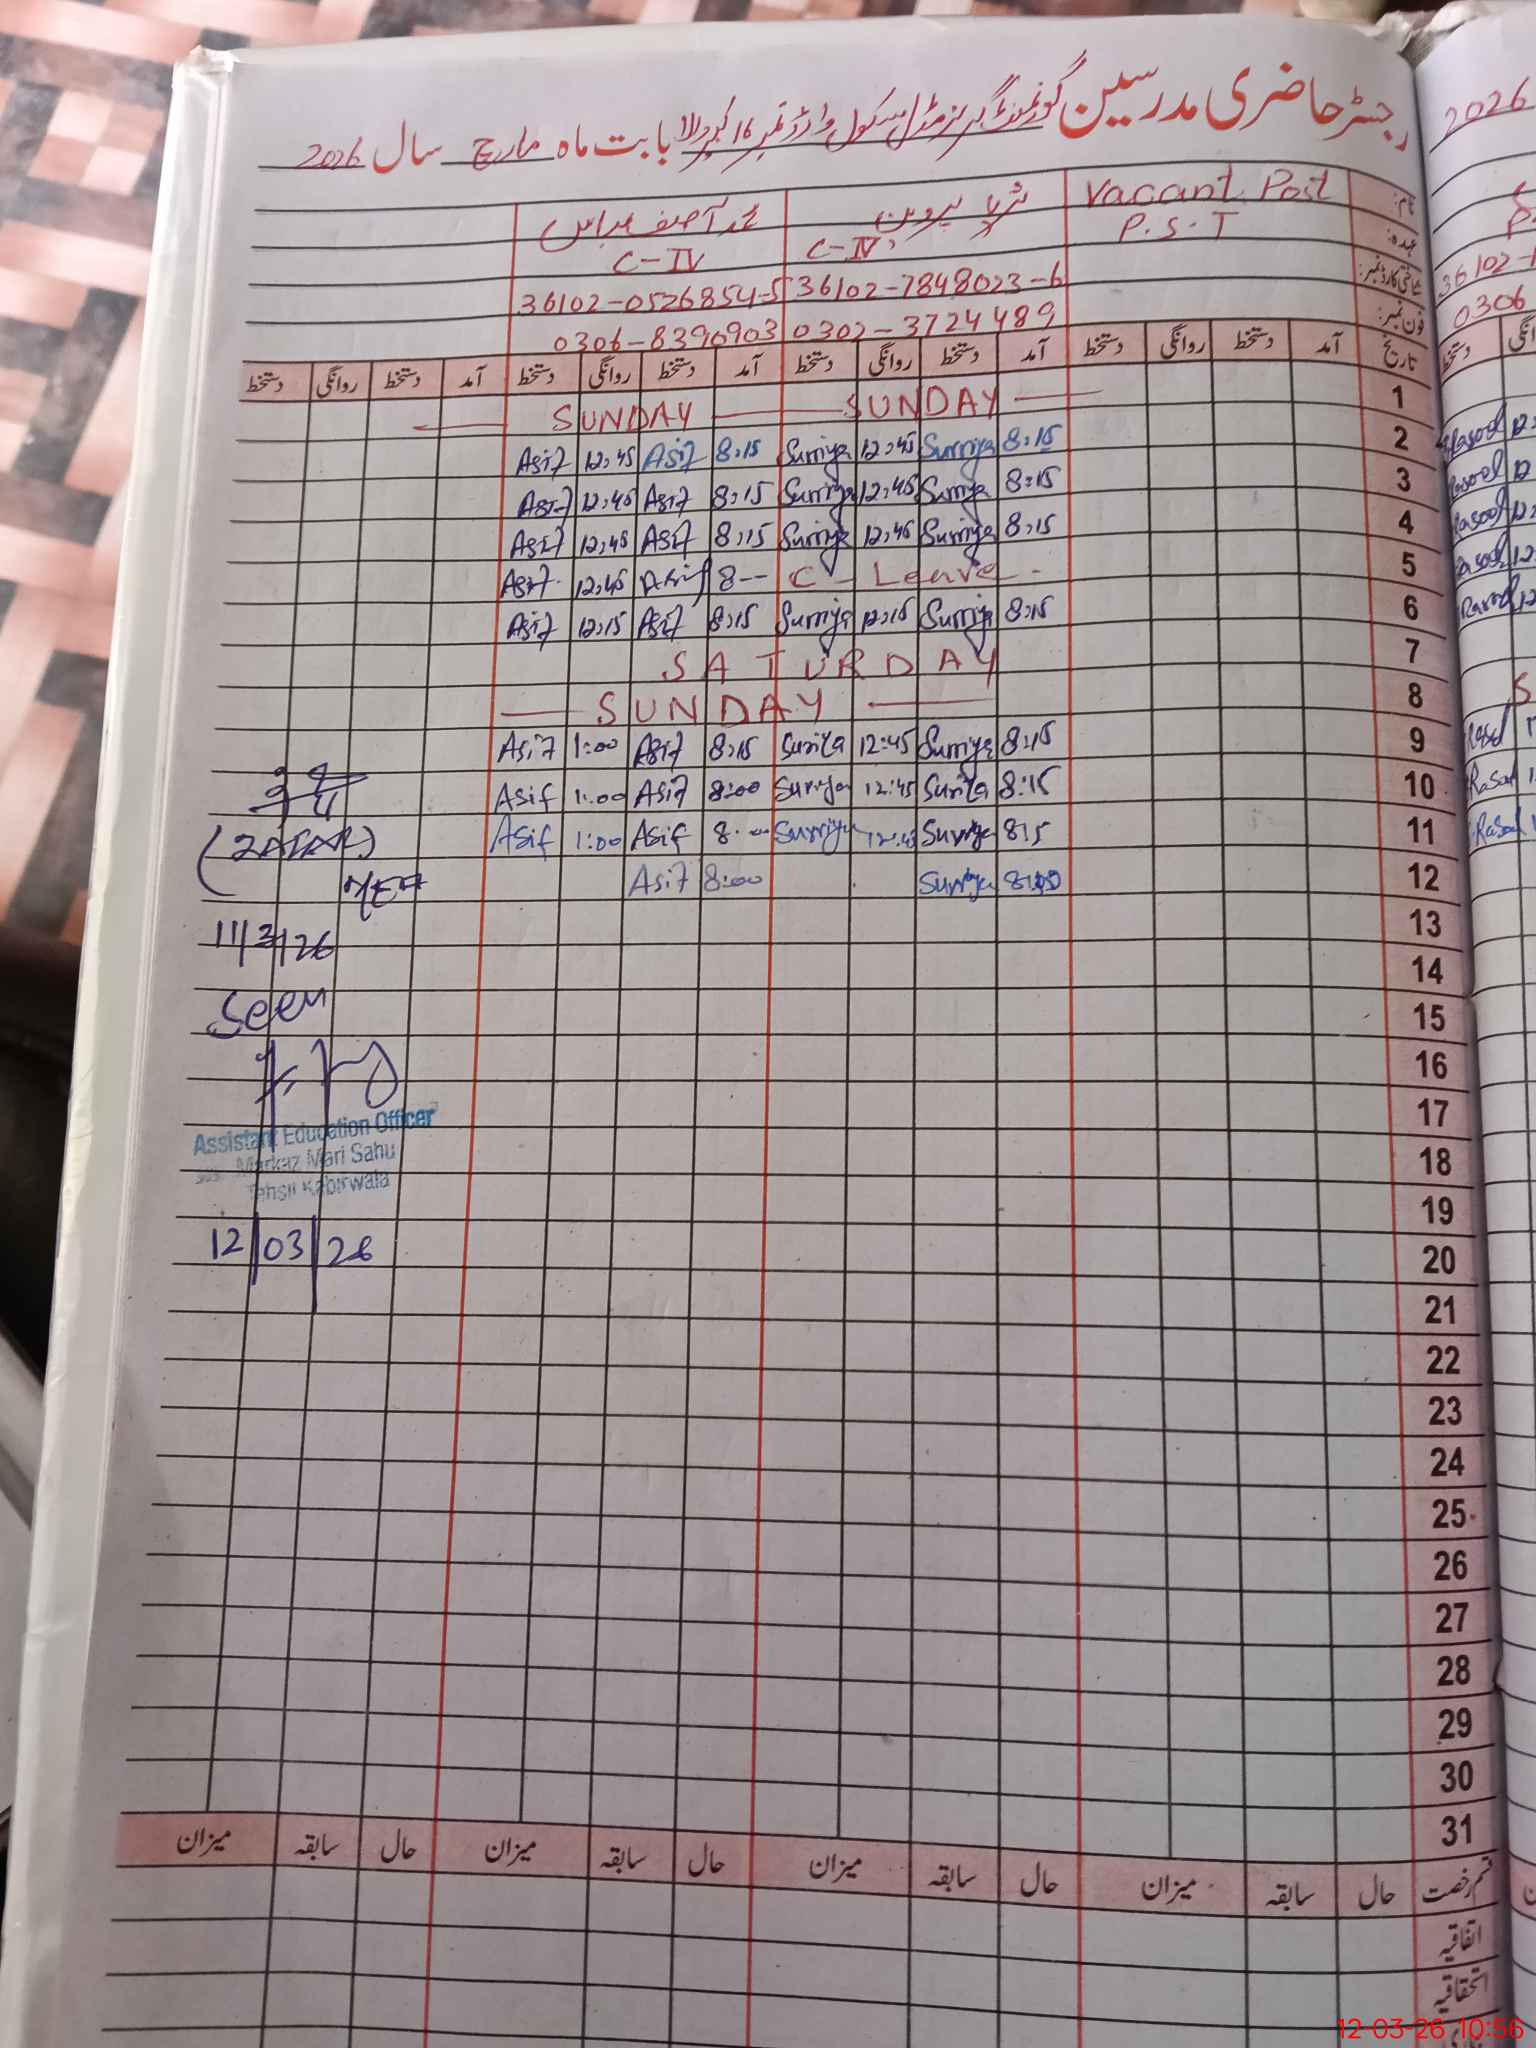 رجسٹر حاضری مدرسین گورنمنٹ گرلز مڈل سکول وارڈ نمبر 16 کبیروالا بابت ماہ مارچ سال 2026
نام: Vacant Post ثریا پروین محمد آصف عباس
عہدہ: P.S.T C-IV C-IV
شناختی کارڈ نمبر: 36102-7848023-6 36102-0526854-5
فون نمبر: 0302-3724489 0306-8390903
تاریخ آمد دستخط روانگی دستخط آمد دستخط روانگی دستخط آمد دستخط روانگی دستخط آمد دستخط روانگی دستخط
SUNDAY SUNDAY 1
Asif 12:45 Asif 8:15 Surriya 12:45 Surriya 8:15 2
Asif 12:45 Asif 8:15 Surriya 12:45 Surriya 8:15 3
Asif 12:45 Asif 8:15 Surriya 12:45 Surriya 8:15 4
Asif 12:45 Asif 8-- C-Leave 5
Asif 12:15 Asif 8:15 Surriya 12:15 Surriya 8:15 6
SATURDAY 7
SUNDAY 8
Asif 1:00 Asif 8:15 Suriya 12:45 Surriya 8:15 9
Asif 1:00 Asif 8:00 Surriya 12:45 Suriya 8:15 10
Asif 1:00 Asif 8:00 Surriya 12:45 Surriya 8:15 11
Asif 8:00 Surriya 8:00 12
(ZAFAR)
MEA
11/3/26
Seen
Assistant Education Officer
Markaz Mari Sahu
Tehsil Kabirwala
12/03/26
13
14
15
16
17
18
19
20
21
22
23
24
25
26
27
28
29
30
31
قسم رخصت حال سابقہ میزان حال سابقہ میزان حال سابقہ میزان حال سابقہ میزان
اتفاقیہ
استحقاقیہ
2026
36102-1
0306
دستخط
Rasool 12
Rasool 12
Rasool 12
Rasool 12
Rasool 12
S
Rasool 1
Rasool 1
Rasool 1
12-03-26 10:56